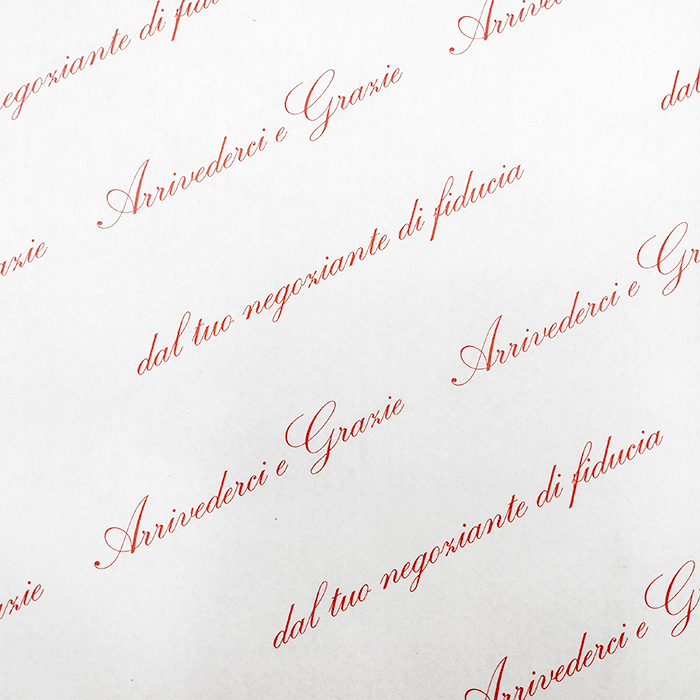 negoziante di
Arrivederci e Grazie
dal tuo negoziante di fiducia
Arrivederci e
Arrivederci e Grazie
dal tuo negoziante di fiducia
Arrivederci e